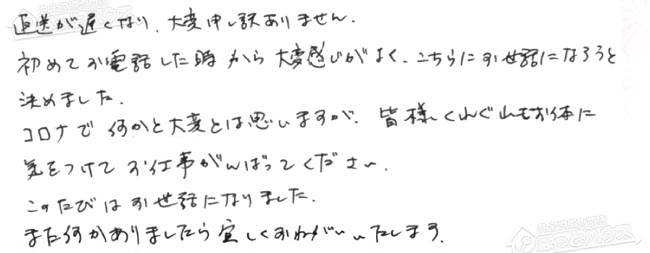 返送が遅くなり、大変申し訳ありません.
初めてお電話した時から大変感じがよく、こちらにお世話になろうと
決めました.
コロナで何かと大変とは思いますが、皆様くれぐれもお体に
気をつけてお仕事がんばってください.
このたびはお世話になりました.
また何かありましたら宜しくおねがいいたします.